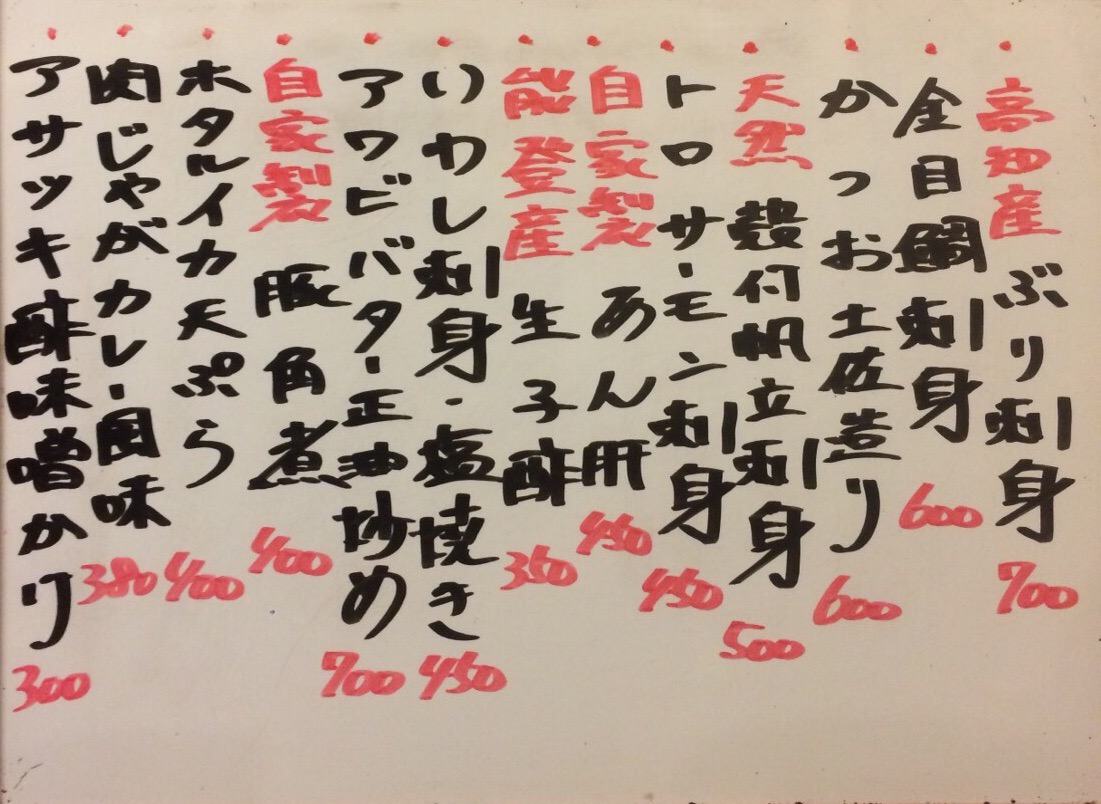 高知産 ぶり刺身 700
金目鯛刺身 600
かつお土佐造り 600
天然 殻付帆立刺身 500
トロサーモン刺身 450
自家製 あん肝 450
能登産 生子酢 350
いわし刺身・塩焼き 450
アワビバター正油炒め 700
自家製 豚角煮 400
ホタルイカ天ぷら 400
肉じゃがカレー風味 380
アサツキ酢味噌かり 300